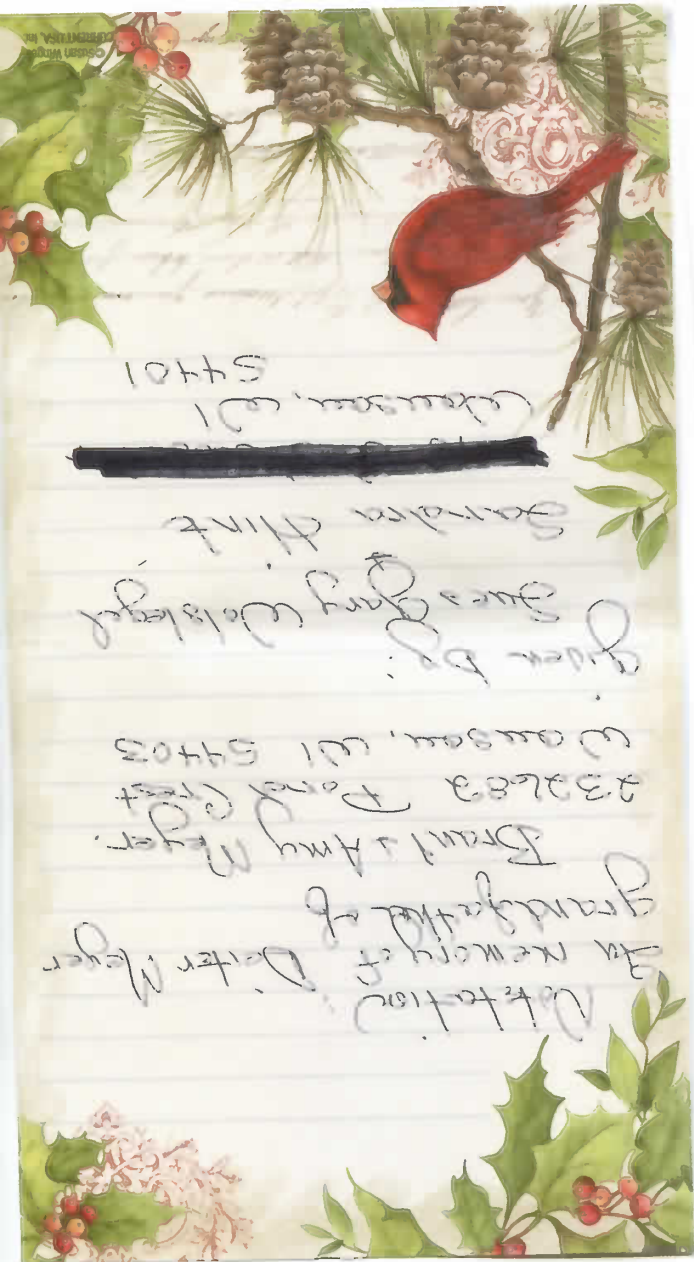 In memory of Dieter Meyer
grandfather of
Amy Meyer.
232682 Pond Crest
Wausau, WI 54403
given by:
Gary Wolslegel
+
Sandra
Wausau, WI
54401
©Susan Winget
CURRENT USA, Inc.